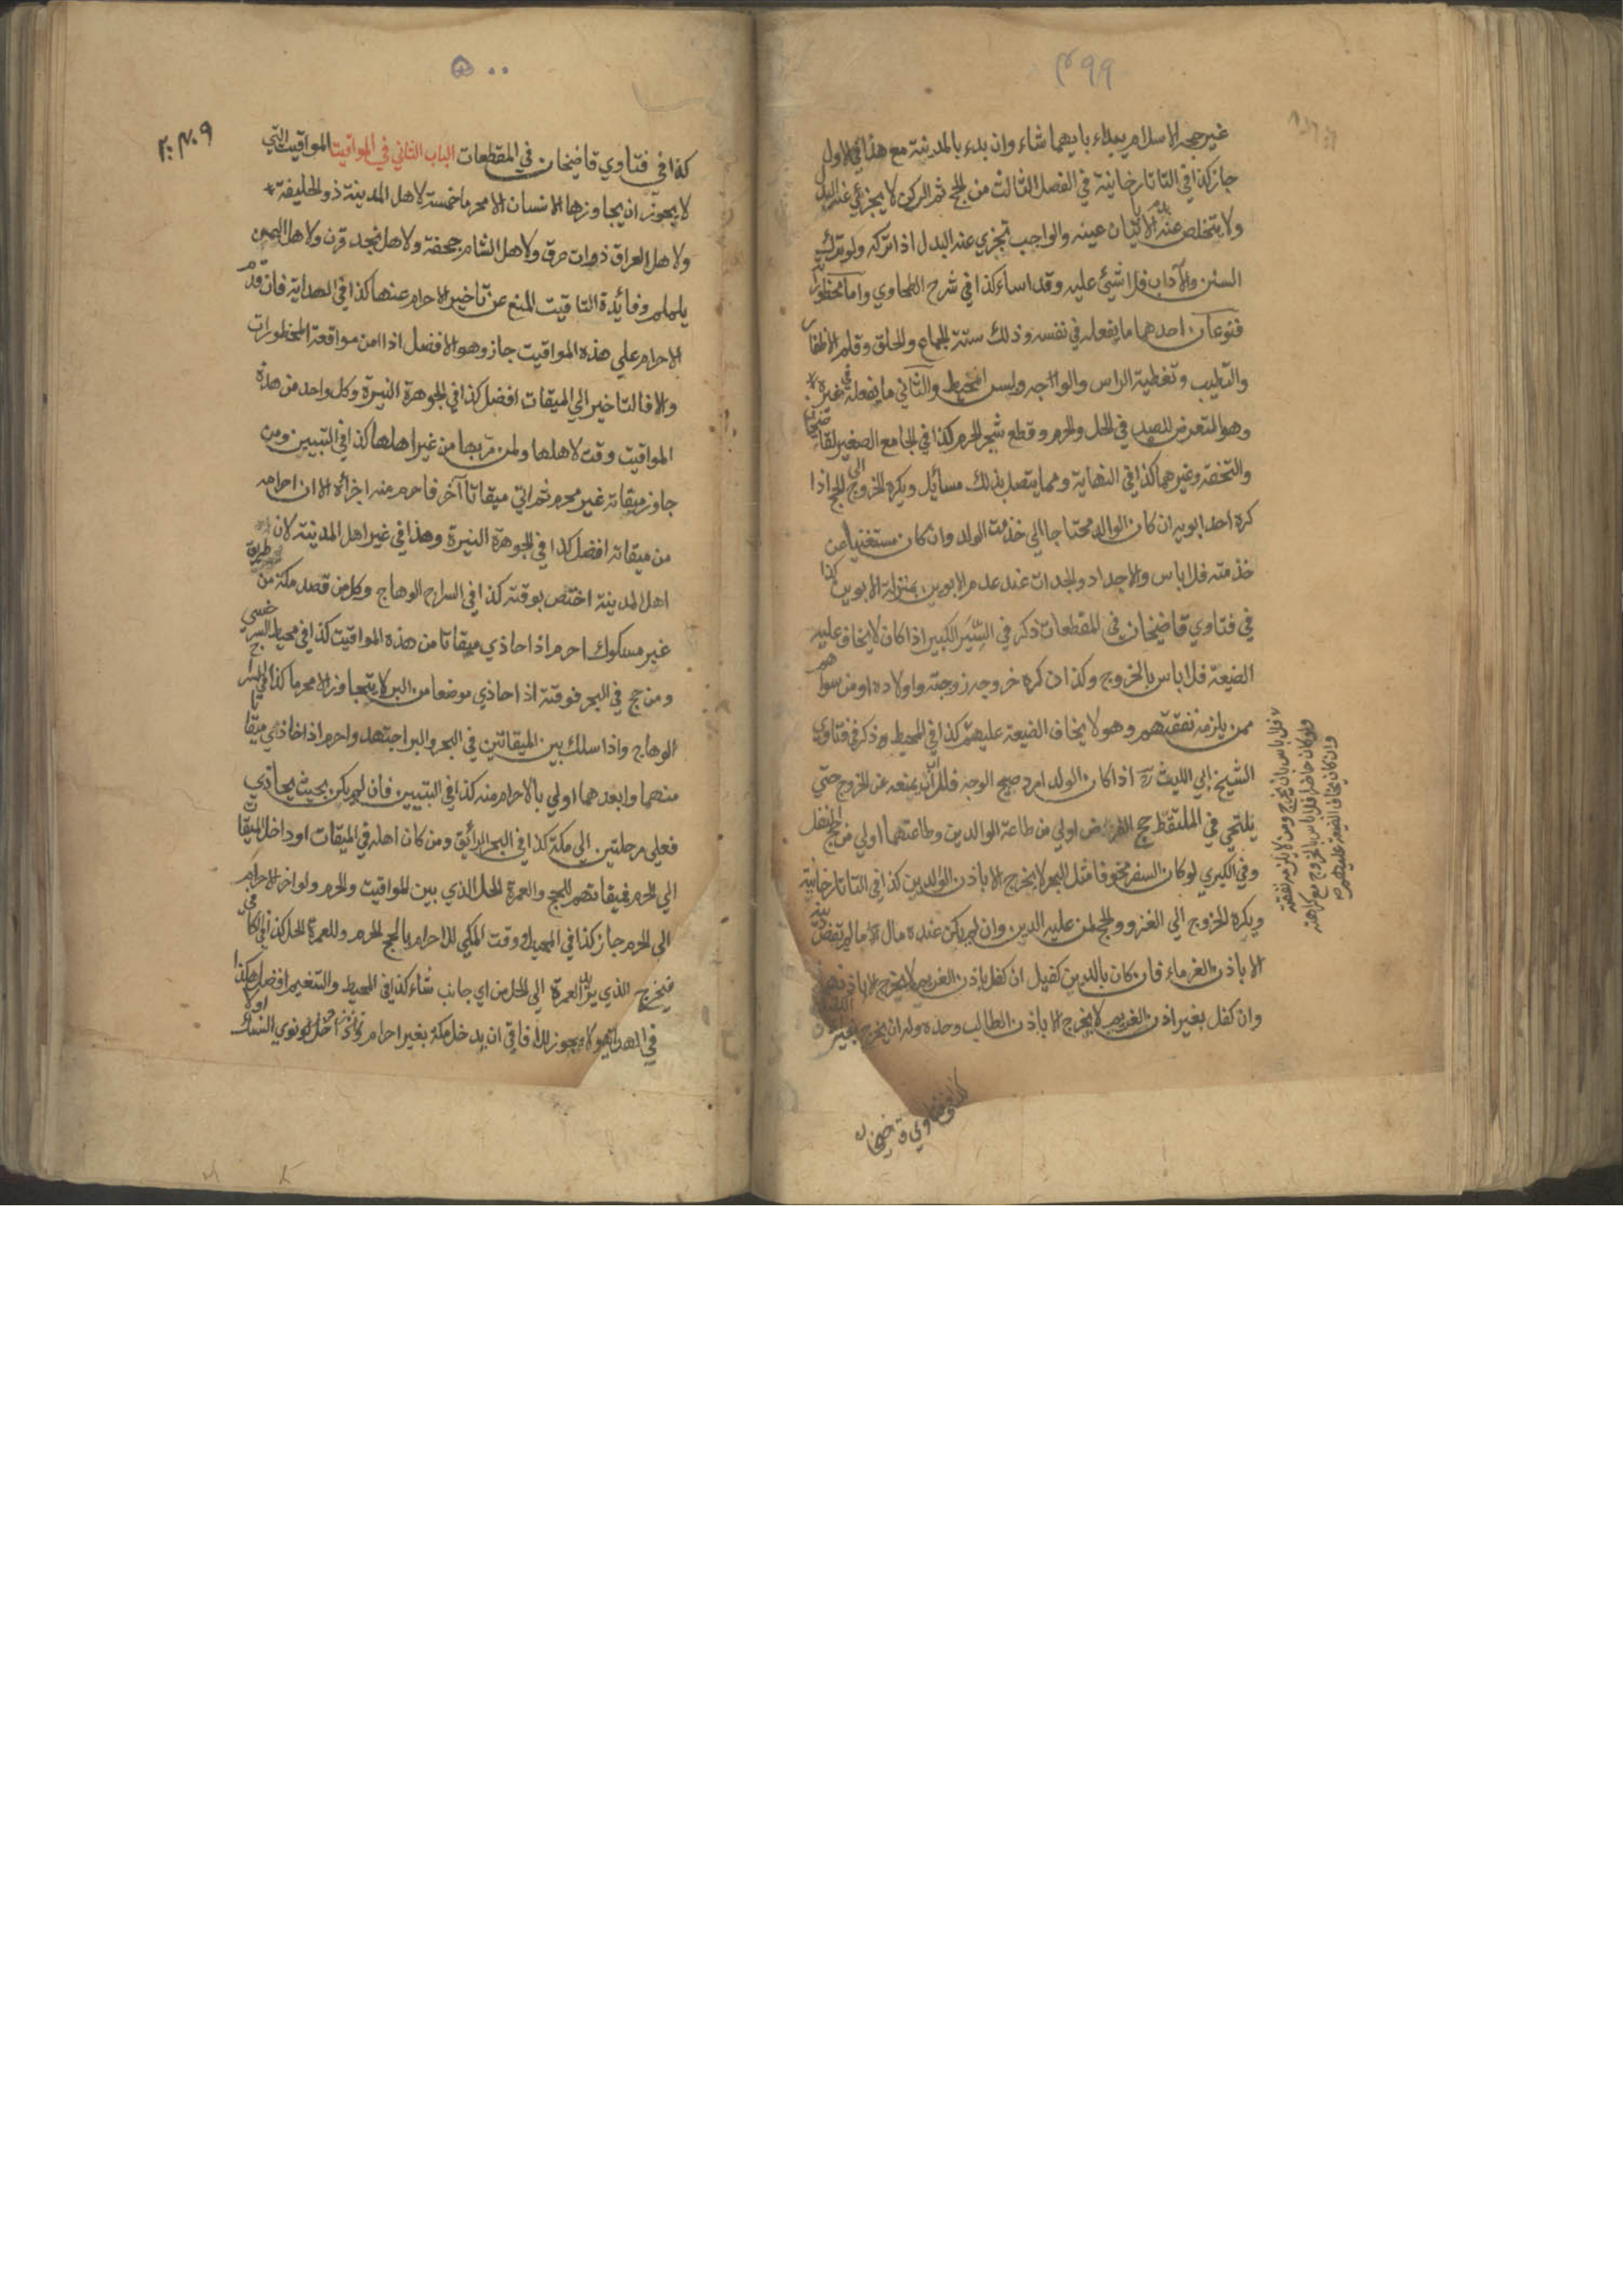 ٤٩٩
غير حجة الاسلام يبداء بايهما شاء وان بدء بالمدينة مع هذا في الاول
جاز كذا في التاتارخانية في الفصل الثالث من الحج ثم الركن لا يجزئ عنه البدل
ولا يتخلص عنه الا بالاتيان عينه والواجب تجزي عنه البدل اذا تركه ولو ترك
السنن والآداب فلا شيئ عليه وقد اساء كذا في شرح الطحاوي واما محظوراته
فنوعان احدهما ما يفعله في نفسه وذلك ستة الجماع والحلق وقلم الاظفار
والتطيب وتغطية الراس والوجه ولبس المخيط والثاني ما يفعله في غيره
وهو التعرض للصيد في الحل والحرم وقطع شجر الحرم كذا في الجامع الصغير لقاضيخان
والتحفة وغيرهما كذا في النهاية ومما يتصل بذلك مسائيل ويكره الخروج الى الحج اذا
كره احد ابويه ان كان الوالد محتاجا الي خذمت الولد وان كان مستغنيا عن
خذمته فلا باس والاجداد والجدات عند عدم الابوين بمنزلة الابوين كذا
في فتاوي قاضيخان في المقطعات ذكر في السير الكبير اذا كان لا يخاف عليه
الضيعة فلا باس بالخروج وكذا ان كره خروجه زوجته واولاده او من سواهم
ممن يلزمه نفقتهم وهو لا يخاف الضيعة عليهم كذا في المحيط وذكر في فتاوي
الشيخ ابي الليث رح اذا كان الولد امرد صبيح الوجه فللاب ان يمنعه عن الخروج حتي
يلتحي في الملتقط حج الفرض اولي من طاعة الوالدين وطاعتهما اولي من حج النفل
وفي الكبري لو كان السفر مخوفا مثل البحر لا يخرج الا باذن الوالدين كذا في التاتارخانية
ويكره الخروج الي الغزو والحج لمن عليه الدين وان لم يكن عنده مال ما لم يقض دينه
الا باذن الغرماء فان كان بالدين كفيل ان كفل باذن الغريم لا يخرج الا باذنهما
وان كفل بغير اذن الغريم لا يخرج الا باذن الطالب وحده وله ان يخرج بغير
كذا في فتاوي قاضيخان
فلا باس بان يخرج ومن لا يلزمه نفقته
لو كان حاضرا فلا باس بالخروج مع كراهته
وان كان يخاف الضيعة عليهم
٥٠٠
كذا في فتاوي قاضيخان في المقطعات الباب الثاني في المواقيت المواقيت التي
لا يجوز ان يجاوزها الانسان الا محرما خمسة لاهل المدينة ذو الحليفة
ولاهل العراق ذات عرق ولاهل الشام جحفة ولاهل نجد قرن ولاهل اليمن
يلملم وفائدة التاقيت المنع عن تاخير الاحرام عنها كذا في الهداية فان قدم
الاحرام علي هذه المواقيت جاز وهو الافضل اذا امن مواقعة المحظورات
والا فالتاخير الي الميقات افضل كذا في الجوهرة النيرة وكل واحد من هذه
المواقيت وقت لاهلها ولمن مر بها من غير اهلها كذا في التبيين ومن
جاوز ميقاته غير محرم ثم اتي ميقاتا آخر فاحرم منه اجزأه الا ان احرامه
من ميقاته افضل كذا في الجوهرة النيرة وهذا في غير اهل المدينة لان
اهل المدينة اختص بوقته كذا في السراج الوهاج وكل من قصد مكة من طريق
غير مسكوك احرم اذا حاذي ميقاتا من هذه المواقيت كذا في محيط السرخسي
ومن حج في البحر فوقته اذا حاذي موضعا من البر لا يتجاوز الا محرما كذا في السراج
الوهاج واذا سلك بين الميقاتين في البحر والبر اجتهد واحرم اذا حاذي ميقاتا
منهما وابعدهما اولي بالاحرام منه كذا في التبيين فان لم يكن بحيث يحاذي
فعلي مرحلتين الي مكة كذا في البحر الرائق ومن كان اهله في الميقات او داخل الميقات
الي الحرم فميقاتهم للحج والعمرة الحل الذي بين المواقيت والحرم ولو اخر الاحرام
الى الحرم جاز كذا في المحيط ووقت المكي للاحرام بالحج الحرم وللعمرة الحل كذا في الكافي
فيخرج الذي يريد العمرة الي الحل من اي جانب شاء كذا في المحيط والتنعيم افضل هكذا
في الهداية ولا يجوز للآفاقي ان يدخل مكة بغير احرام نوي النسك اولا